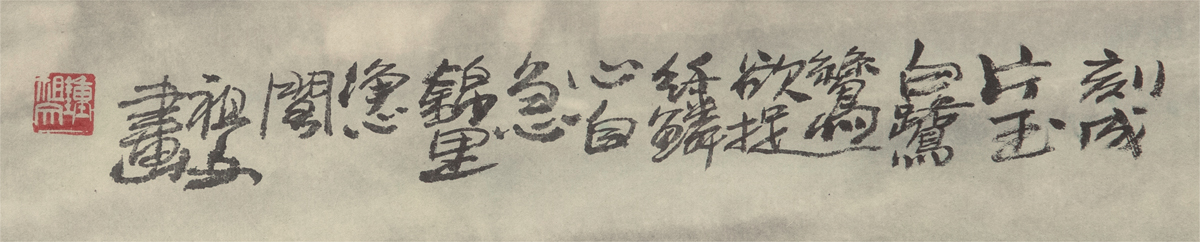 刻成
片玉
白鷺
鷥
欲捉
纖鱗
心自
急
錦里
祖安
畫